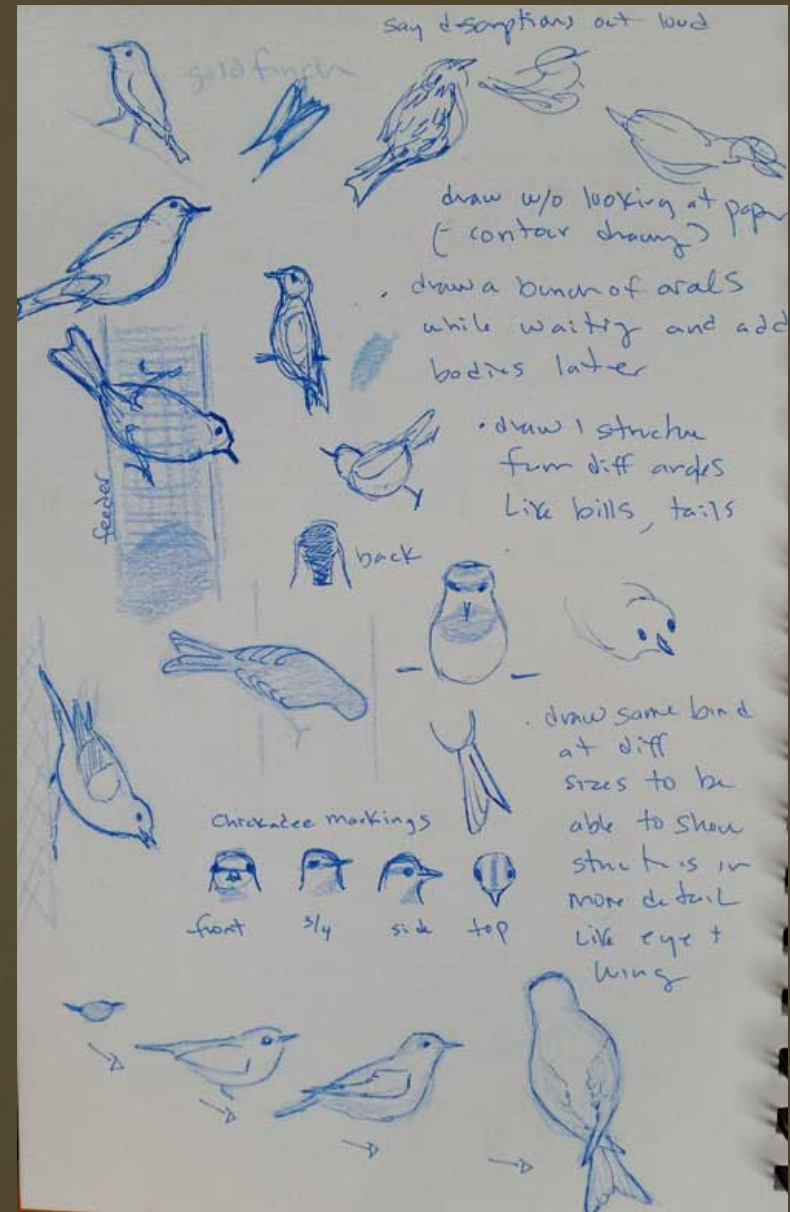 say descriptions out loud
goldfinch
draw w/o looking at paper
(- contour drawing)
. draw a bunch of ovals
while waiting and add
bodies later
feeder
• draw 1 structure
from diff angles
Like bills, tails
back
. draw same bird
at diff
sizes to be
able to show
structures in
more detail
Like eye +
wing
Chickadee markings
front 3/4 side top